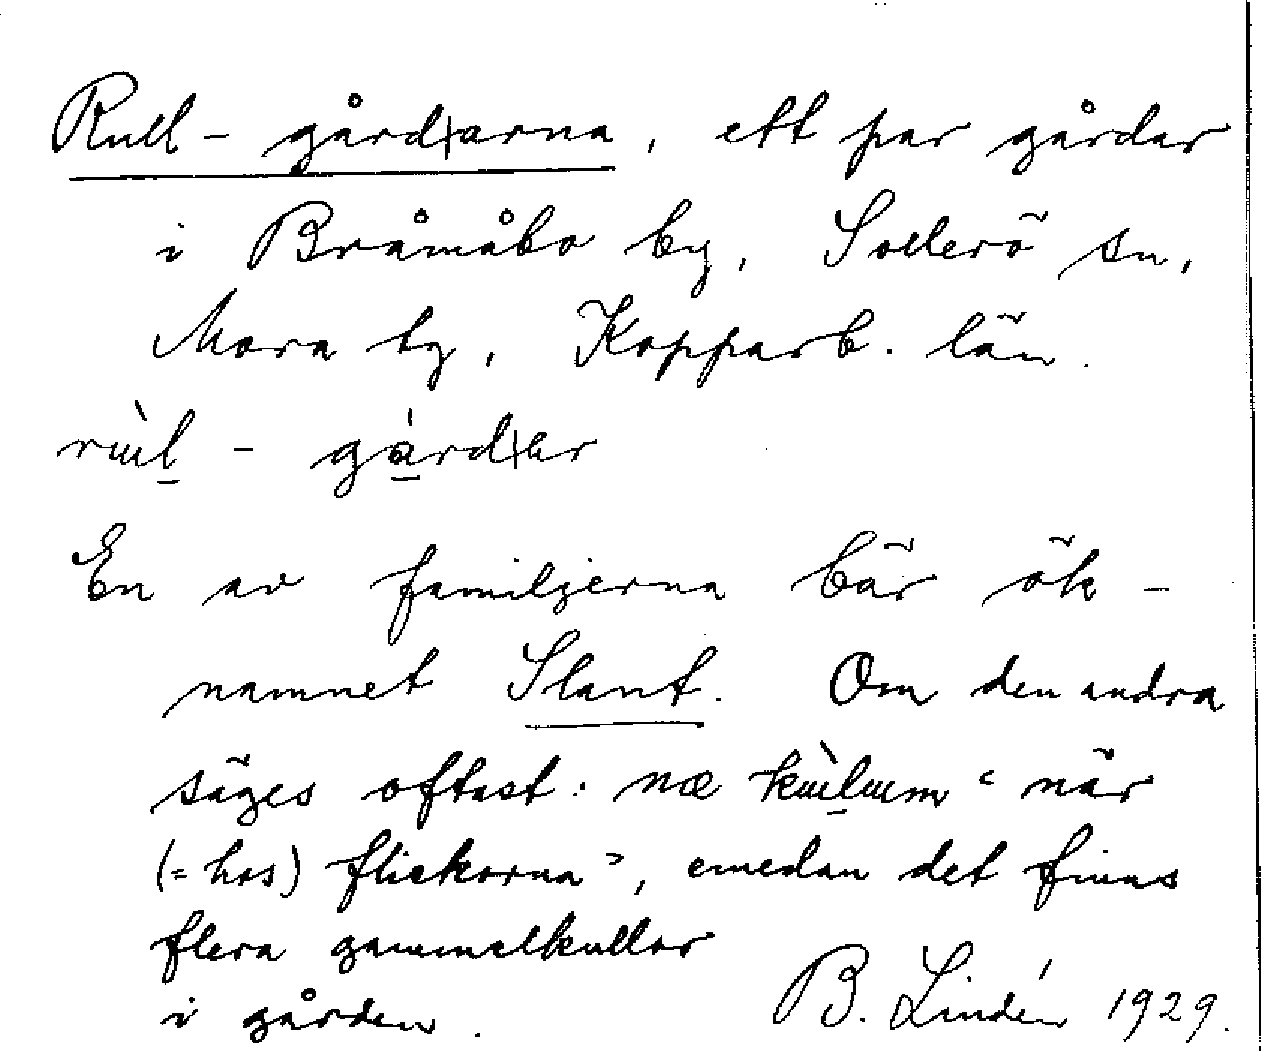 Rull - gård|arna, ett par gårdar
i Bråmåbo by, Sollerö sn,
Mora tg, Kopparb. län.
rɯ̀l - gárd|ar
En av familjerna bär ök-
namnet Slant. Om den andra
säges oftast: næ kɯ̀lɯm "när
(= hos) flickorna", emedan det finns
flera gammelkullor
i gården.
B. Lindén 1929.